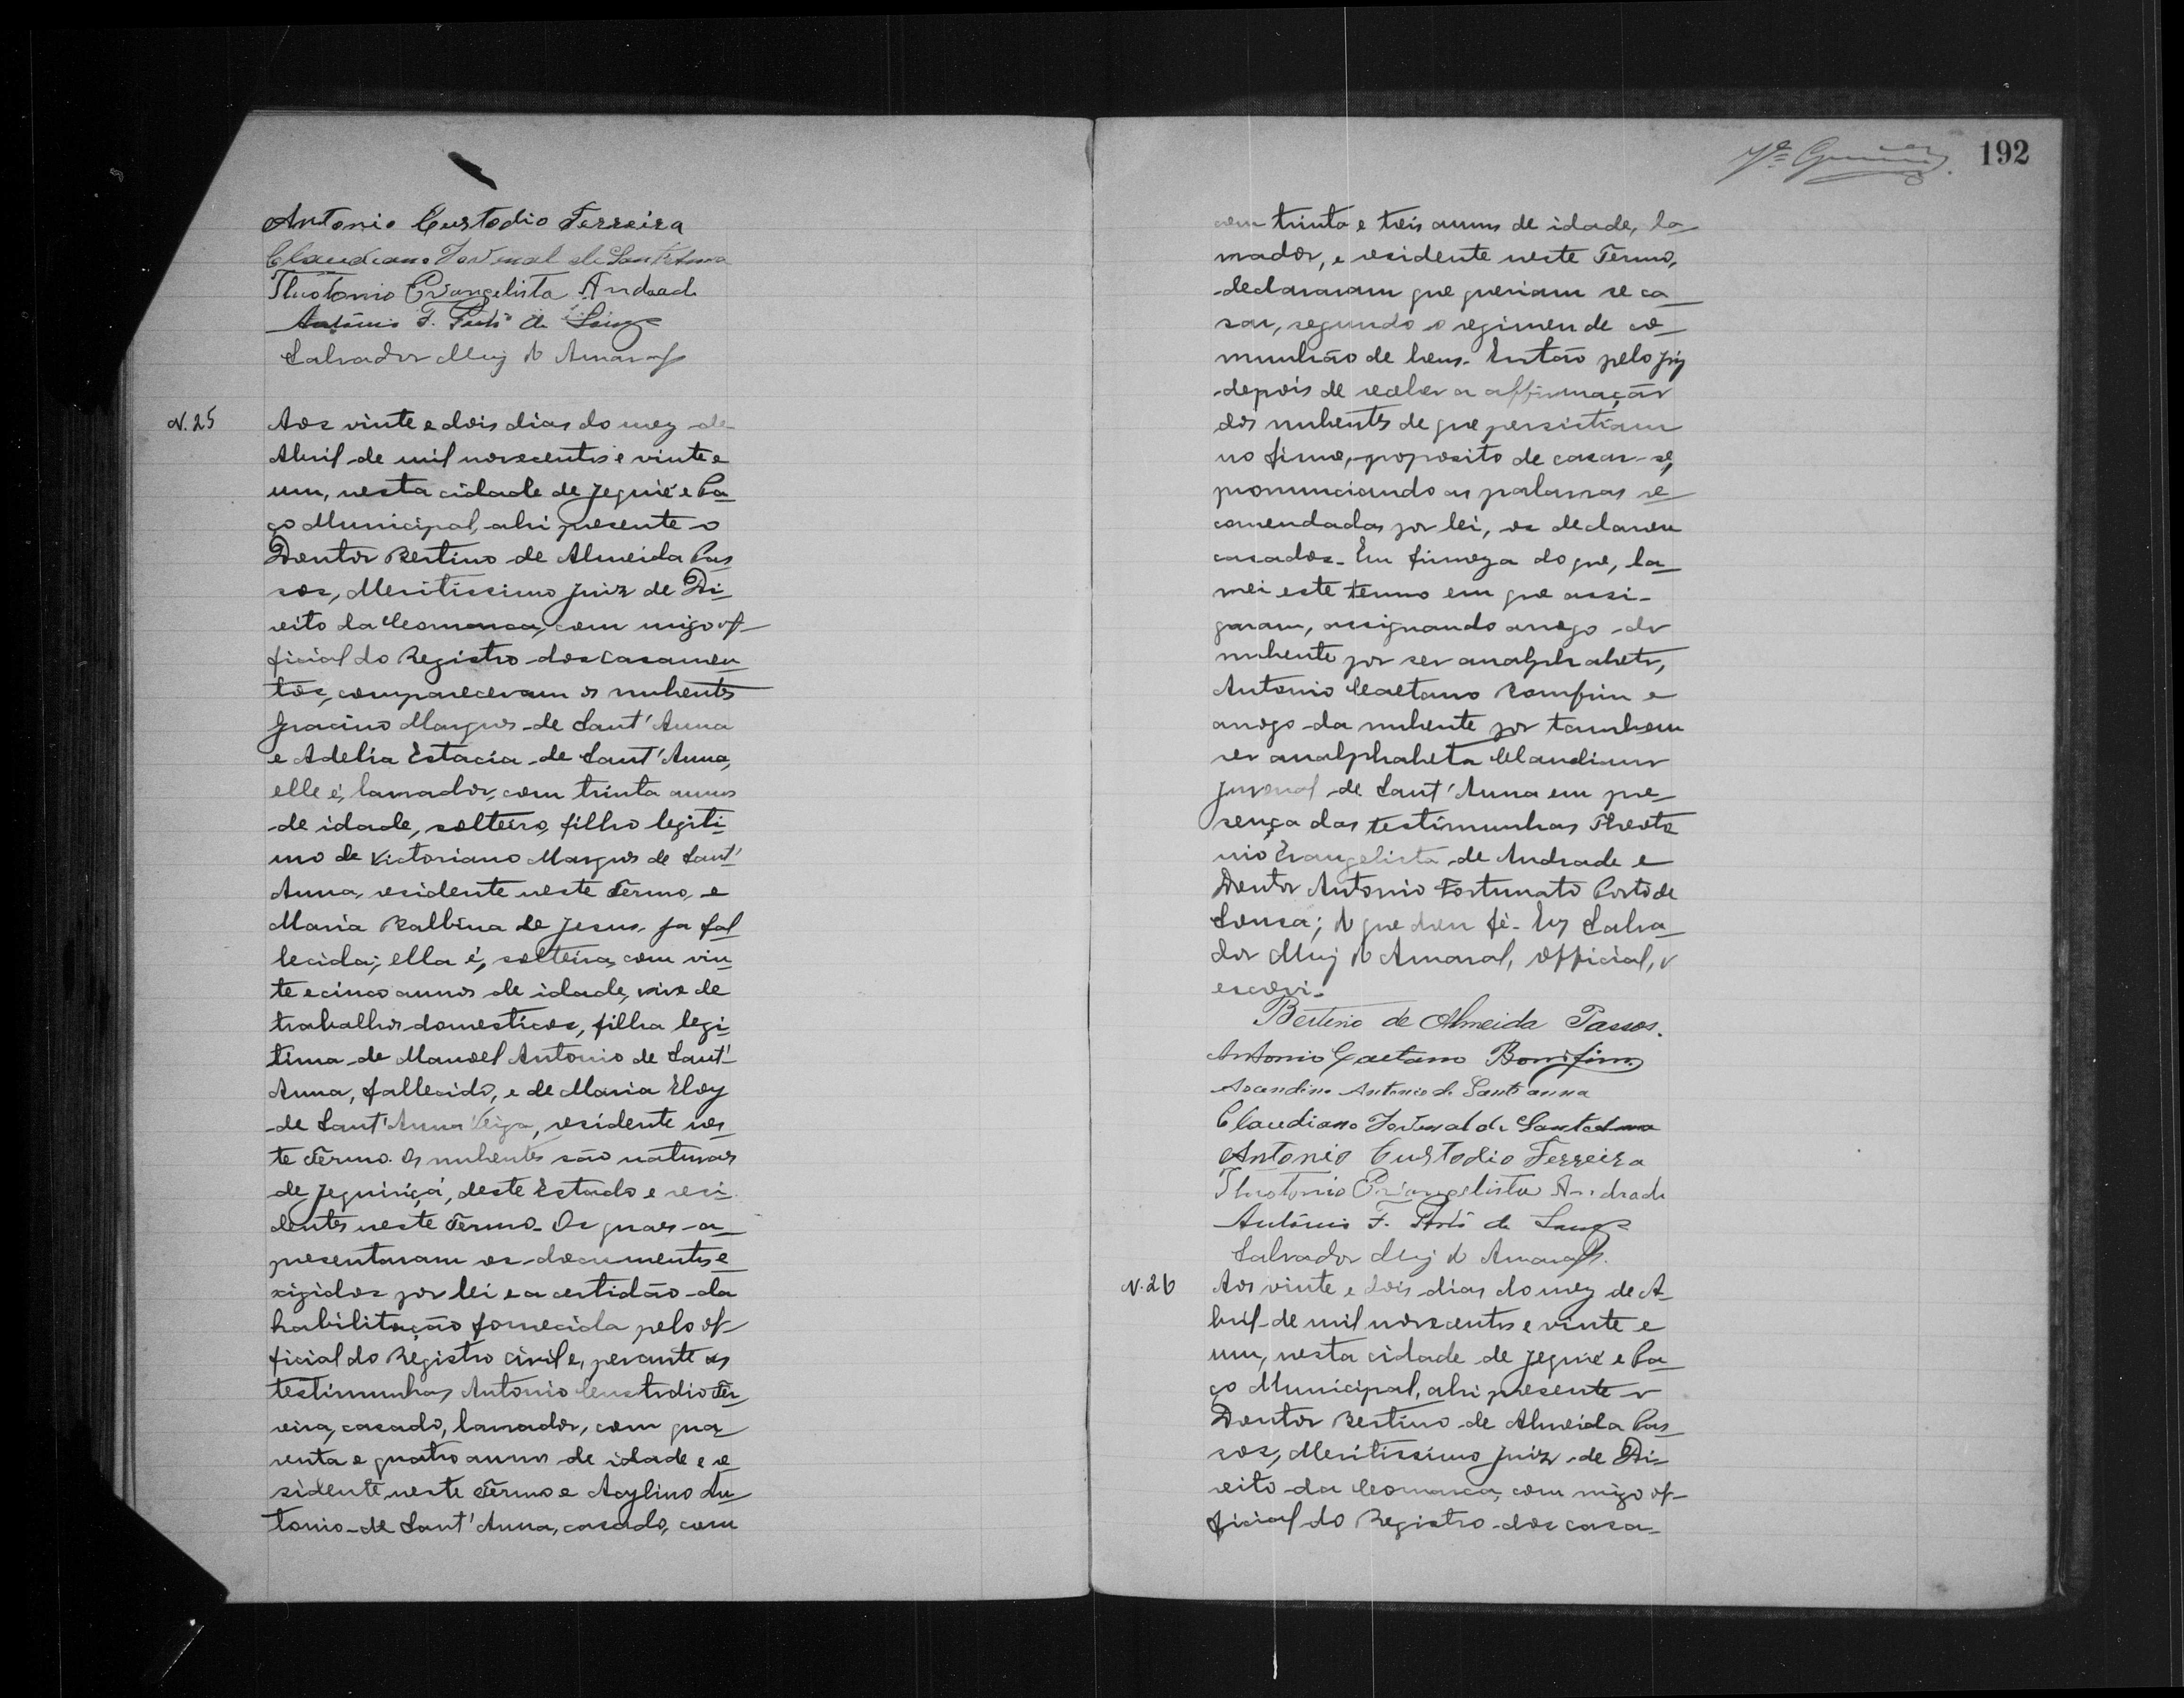 Antonio Custodio Ferreira
Claudiano Juvenal de Sant'Anna
Theotonio Evangelista Andrade
Antônio F. Porto de Souza
Salvador Muiz d'Amaral
N. 25
Aos vinte e dois dias do mez de
Abril de mil novecentos e vinte e
um, nesta cidade de Jequié e Pa
ço Municipal, ahi presente o
Doutor Bertino de Almeida Pas
sos, Meritissimo Juiz de Di
reito da Comarca, com migo of
ficial do Registro dos casamen
tos, compareceram os nubentes
Gracino Marques de Sant'Anna
e Adelia Estacia de Sant'Anna,
elle é, lavrador, com trinta annos
de idade, solteiro, filho legiti
mo de Victoriano Marques de Sant'
Anna, residente neste Termo, e
Maria Balbina de Jesus, ja fal
lecida; ella é, solteira, com vin
te e cinco annos de idade, vive de
trabalhos domesticos, filha legi
tima de Manoel Antonio de Sant'
Anna, fallecido, e de Maria Eloy
de Sant'Anna Veiga, residente nes
te Termo. Os nubentes são naturaes
de Jequiriçá, deste Estado e resi
dentes neste Termo. Os quaes a
presentaram os documentos e
xigidos por lei e a certidão da
habilitação fornecida pelo of
ficial do Registro civil e, perante as
testimunhas Antonio Custodio Fer
reira, casado, lavrador, com qua
renta e quatro annos de idade e re
sidente neste Termo e Acylino An
tonio de Sant'Anna, casado, com
192
com trinta e tres annos de idade, la
vrador, e residente neste Termo,
declararam que queriam se ca
sar, segundo o regimen de co
munhão de bens. Então pelo Juiz
depois de receber a affirmação
dos nubentes de que persistiam
no firme proposito de casar-se,
pronunciando as palavras re
comendadas por lei, os declarou
casados. Em firmeza do que, la
vrei este termo em que assi-
gnaram, assignando arogo do
nubente por ser analphabeto,
Antonio Caetano Bomfim e
arogo da nubente por tambem
ser analphabeta Claudiano
Juvenal de Sant'Anna em pre
sença das testimunhas Theoto
nio Evangelista de Andrade e
Doutor Antonio Fortunato Porto de
Souza; do que dou fé. Eu Salva
dor Muiz d'Amaral, Official, o
escrevi.
Bertino de Almeida Passos.
Antonio Caetano Bomfim.
Antonio de Santanna
Claudiano Juvenal de Santanna
Antonio Custodio Ferreira
Theotonio Evangelista Andrade
Antônio F. Porto de Souza
Salvador Muiz d'Amaral.
N. 26
Aos vinte e dois dias do mez de A
bril de mil novecentos e vinte e
um, nesta cidade de Jequié e Pa
ço Municipal, ahi presente o
Doutor Bertino de Almeida Pas
sos, Meritissimo Juiz de Di
reito da Comarca, com migo of
ficial do Registro dos casa